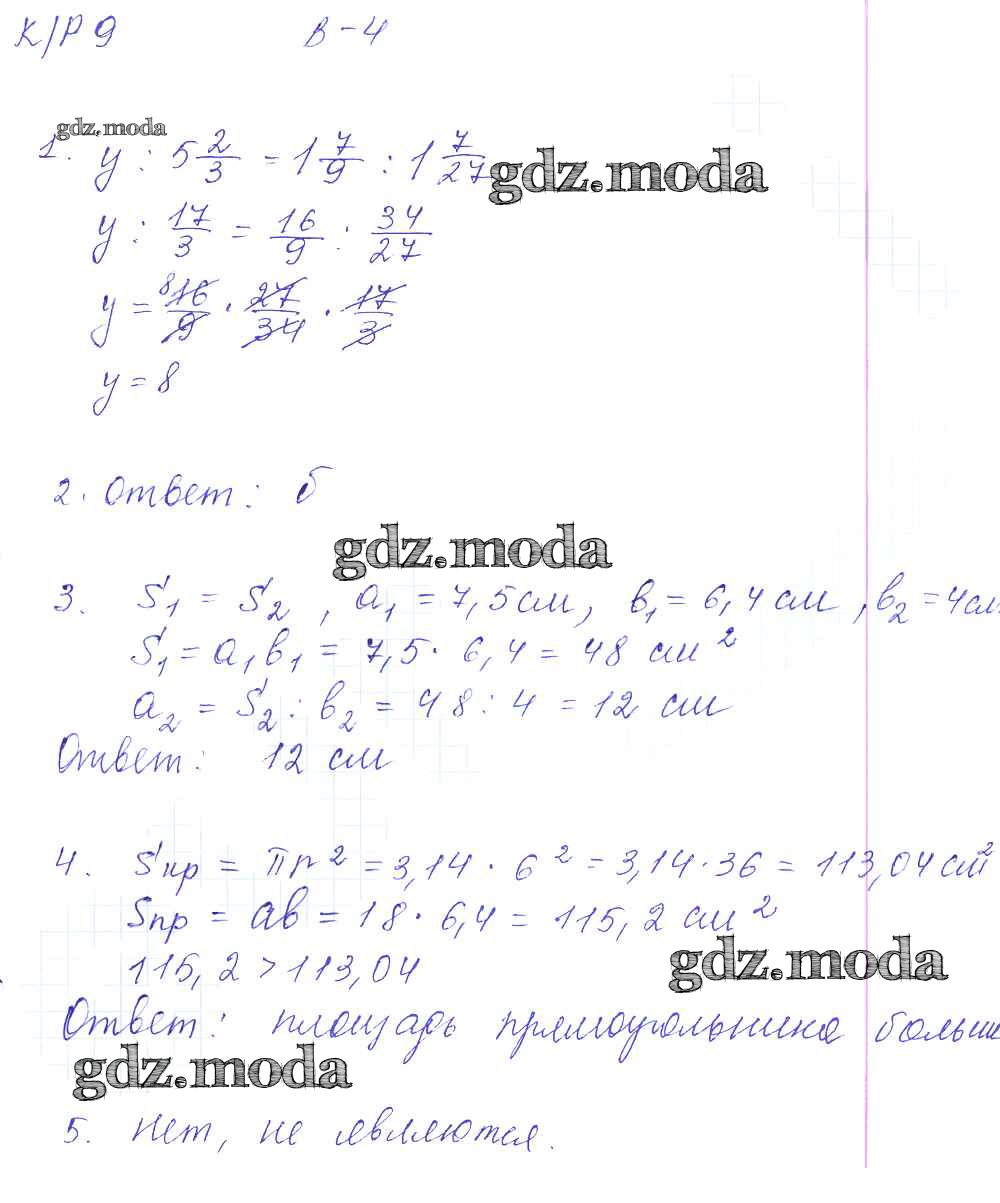 К/Р 9 В-4
gdz.moda
1. y : 5 2/3 = 1 7/9 : 1 7/27
gdz.moda
y : 17/3 = 16/9 : 34/27
y = 8 16/9 · 27/34 · 17/3
y = 8
2. Ответ: б
gdz.moda
3. S₁ = S₂, a₁ = 7,5 см, в₁ = 6,4 см, в₂ = 4см
S₁ = a₁в₁ = 7,5 · 6,4 = 48 см²
a₂ = S₂ : в₂ = 48 : 4 = 12 см
Ответ: 12 см
4. Sкр = πr² = 3,14 · 6² = 3,14 · 36 = 113,04 см²
Sпр = ав = 18 · 6,4 = 115,2 см²
115,2 > 113,04
gdz.moda
Ответ: площадь прямоугольника больше
gdz.moda
5. Нет, не являются.